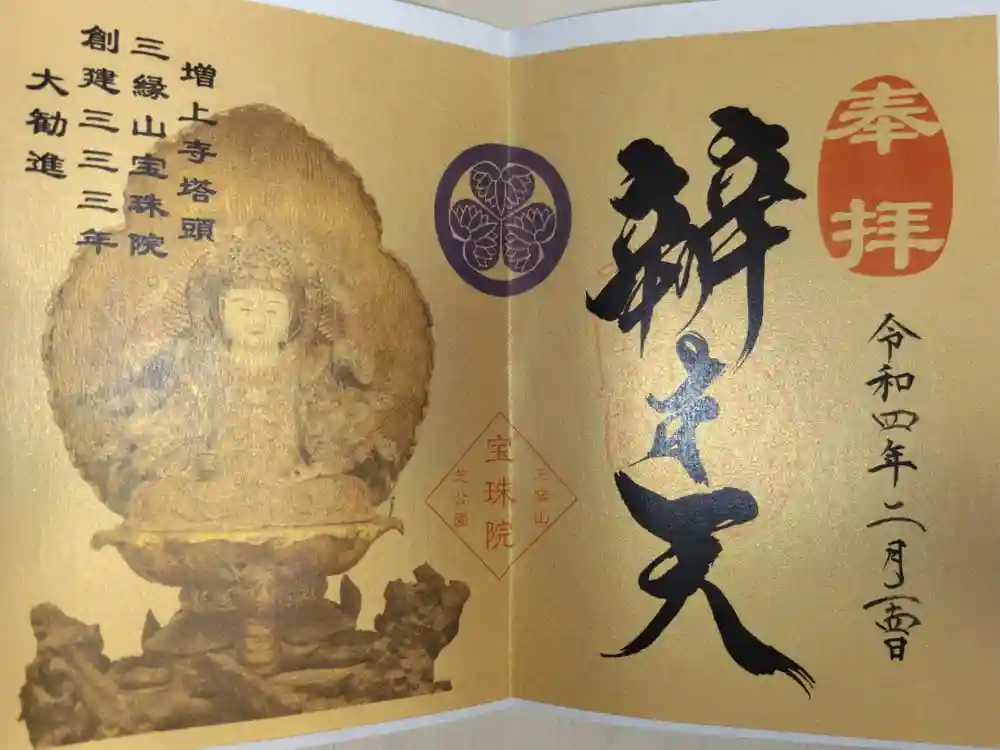 奉拝
令和四年二月一四日
辨才天
三縁山
宝珠院
芝公園
増上寺塔頭
三縁山宝珠院
創建三三三年
大勧進